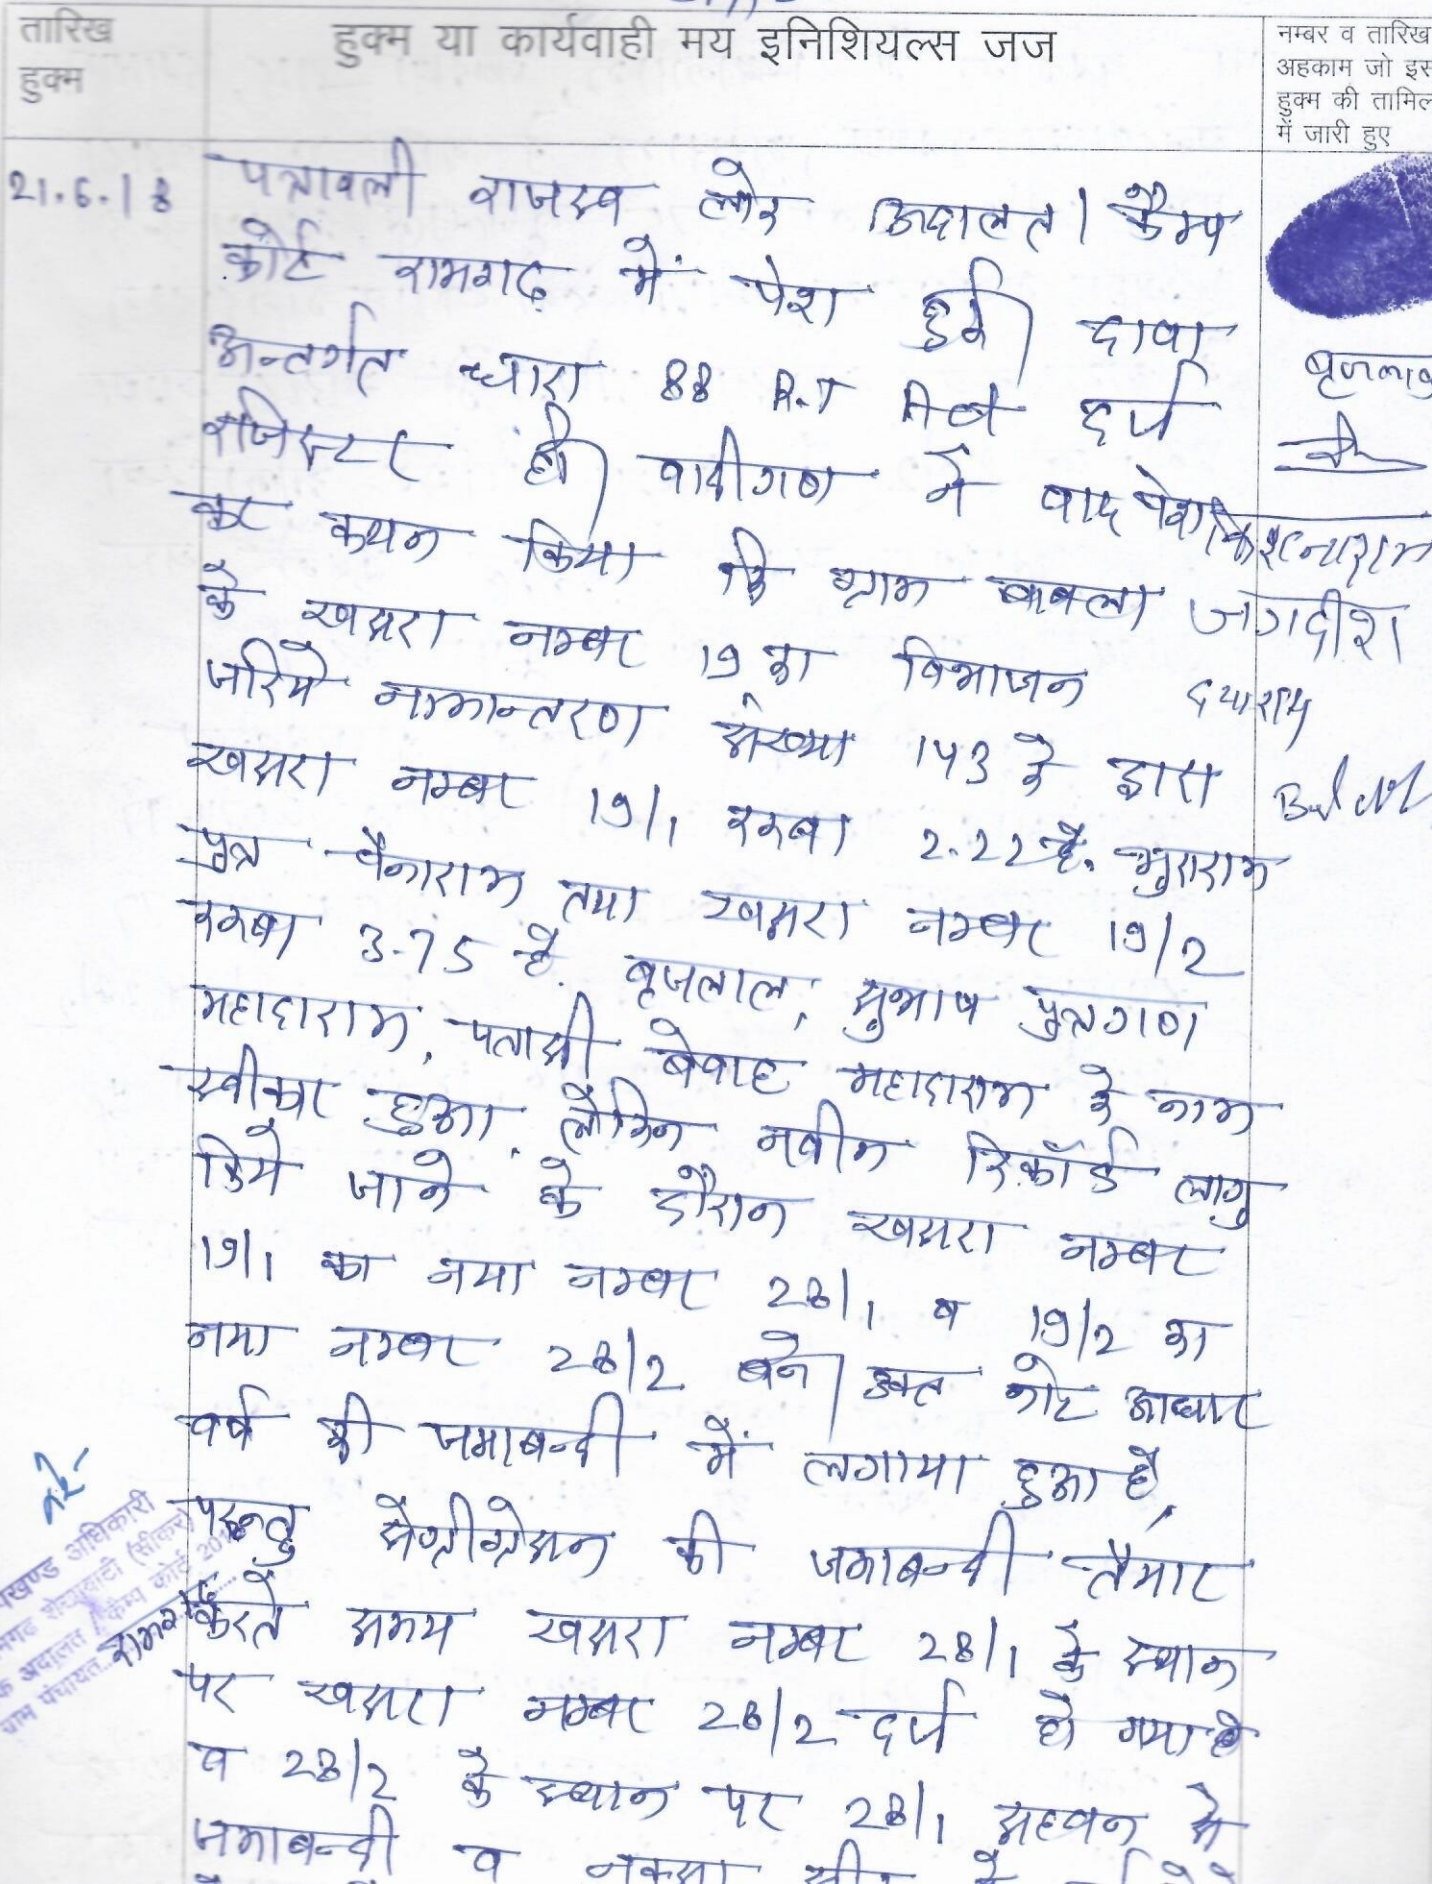 तारिख
हुक्म
हुक्म या कार्यवाही मय इनिशियल्स जज
नम्बर व तारिख
अहकाम जो इस
हुक्म की तामिल
में जारी हुए
21.6.18
पत्रावली राजस्व लोक अदालत। कैम्प
कोर्ट रामगढ़ में पेश हुई। दावा
अन्तर्गत धारा 88 R.T Act दर्ज
रजिस्टर हो। वादीगण ने वाद पेश
कर कथन किया कि ग्राम
के खसरा नम्बर 19 का विभाजन
जरिये नामान्तरण संख्या 143 के द्वारा
खसरा नम्बर 19/1 रकबा 2.22 है.
पुत्र तथा खसरा नम्बर 19/2
रकबा 3.75 है. बृजलाल, सुभाष पुत्रगण
महादाराम, पतासी बेवाह महादाराम के नाम
स्वीकार हुआ, लेकिन नवीन रिकॉर्ड लागु
किये जाने के दौरान खसरा नम्बर
19/1 का नया नम्बर 28/1 व 19/2 का
नया नम्बर 28/2 बने। उक्त नोट आधार
वर्ष की जमाबन्दी में लगाया हुआ है,
परन्तु सेग्रीग्रेसन की जमाबन्दी तैयार
करते समय खसरा नम्बर 28/1 के स्थान
पर खसरा नम्बर 28/2 दर्ज हो गया है
व 28/2 के स्थान पर 28/1 सहवन से
जमाबन्दी व नक्सा
बृजलाल
किशनाराम
जगदीश
दयाराम